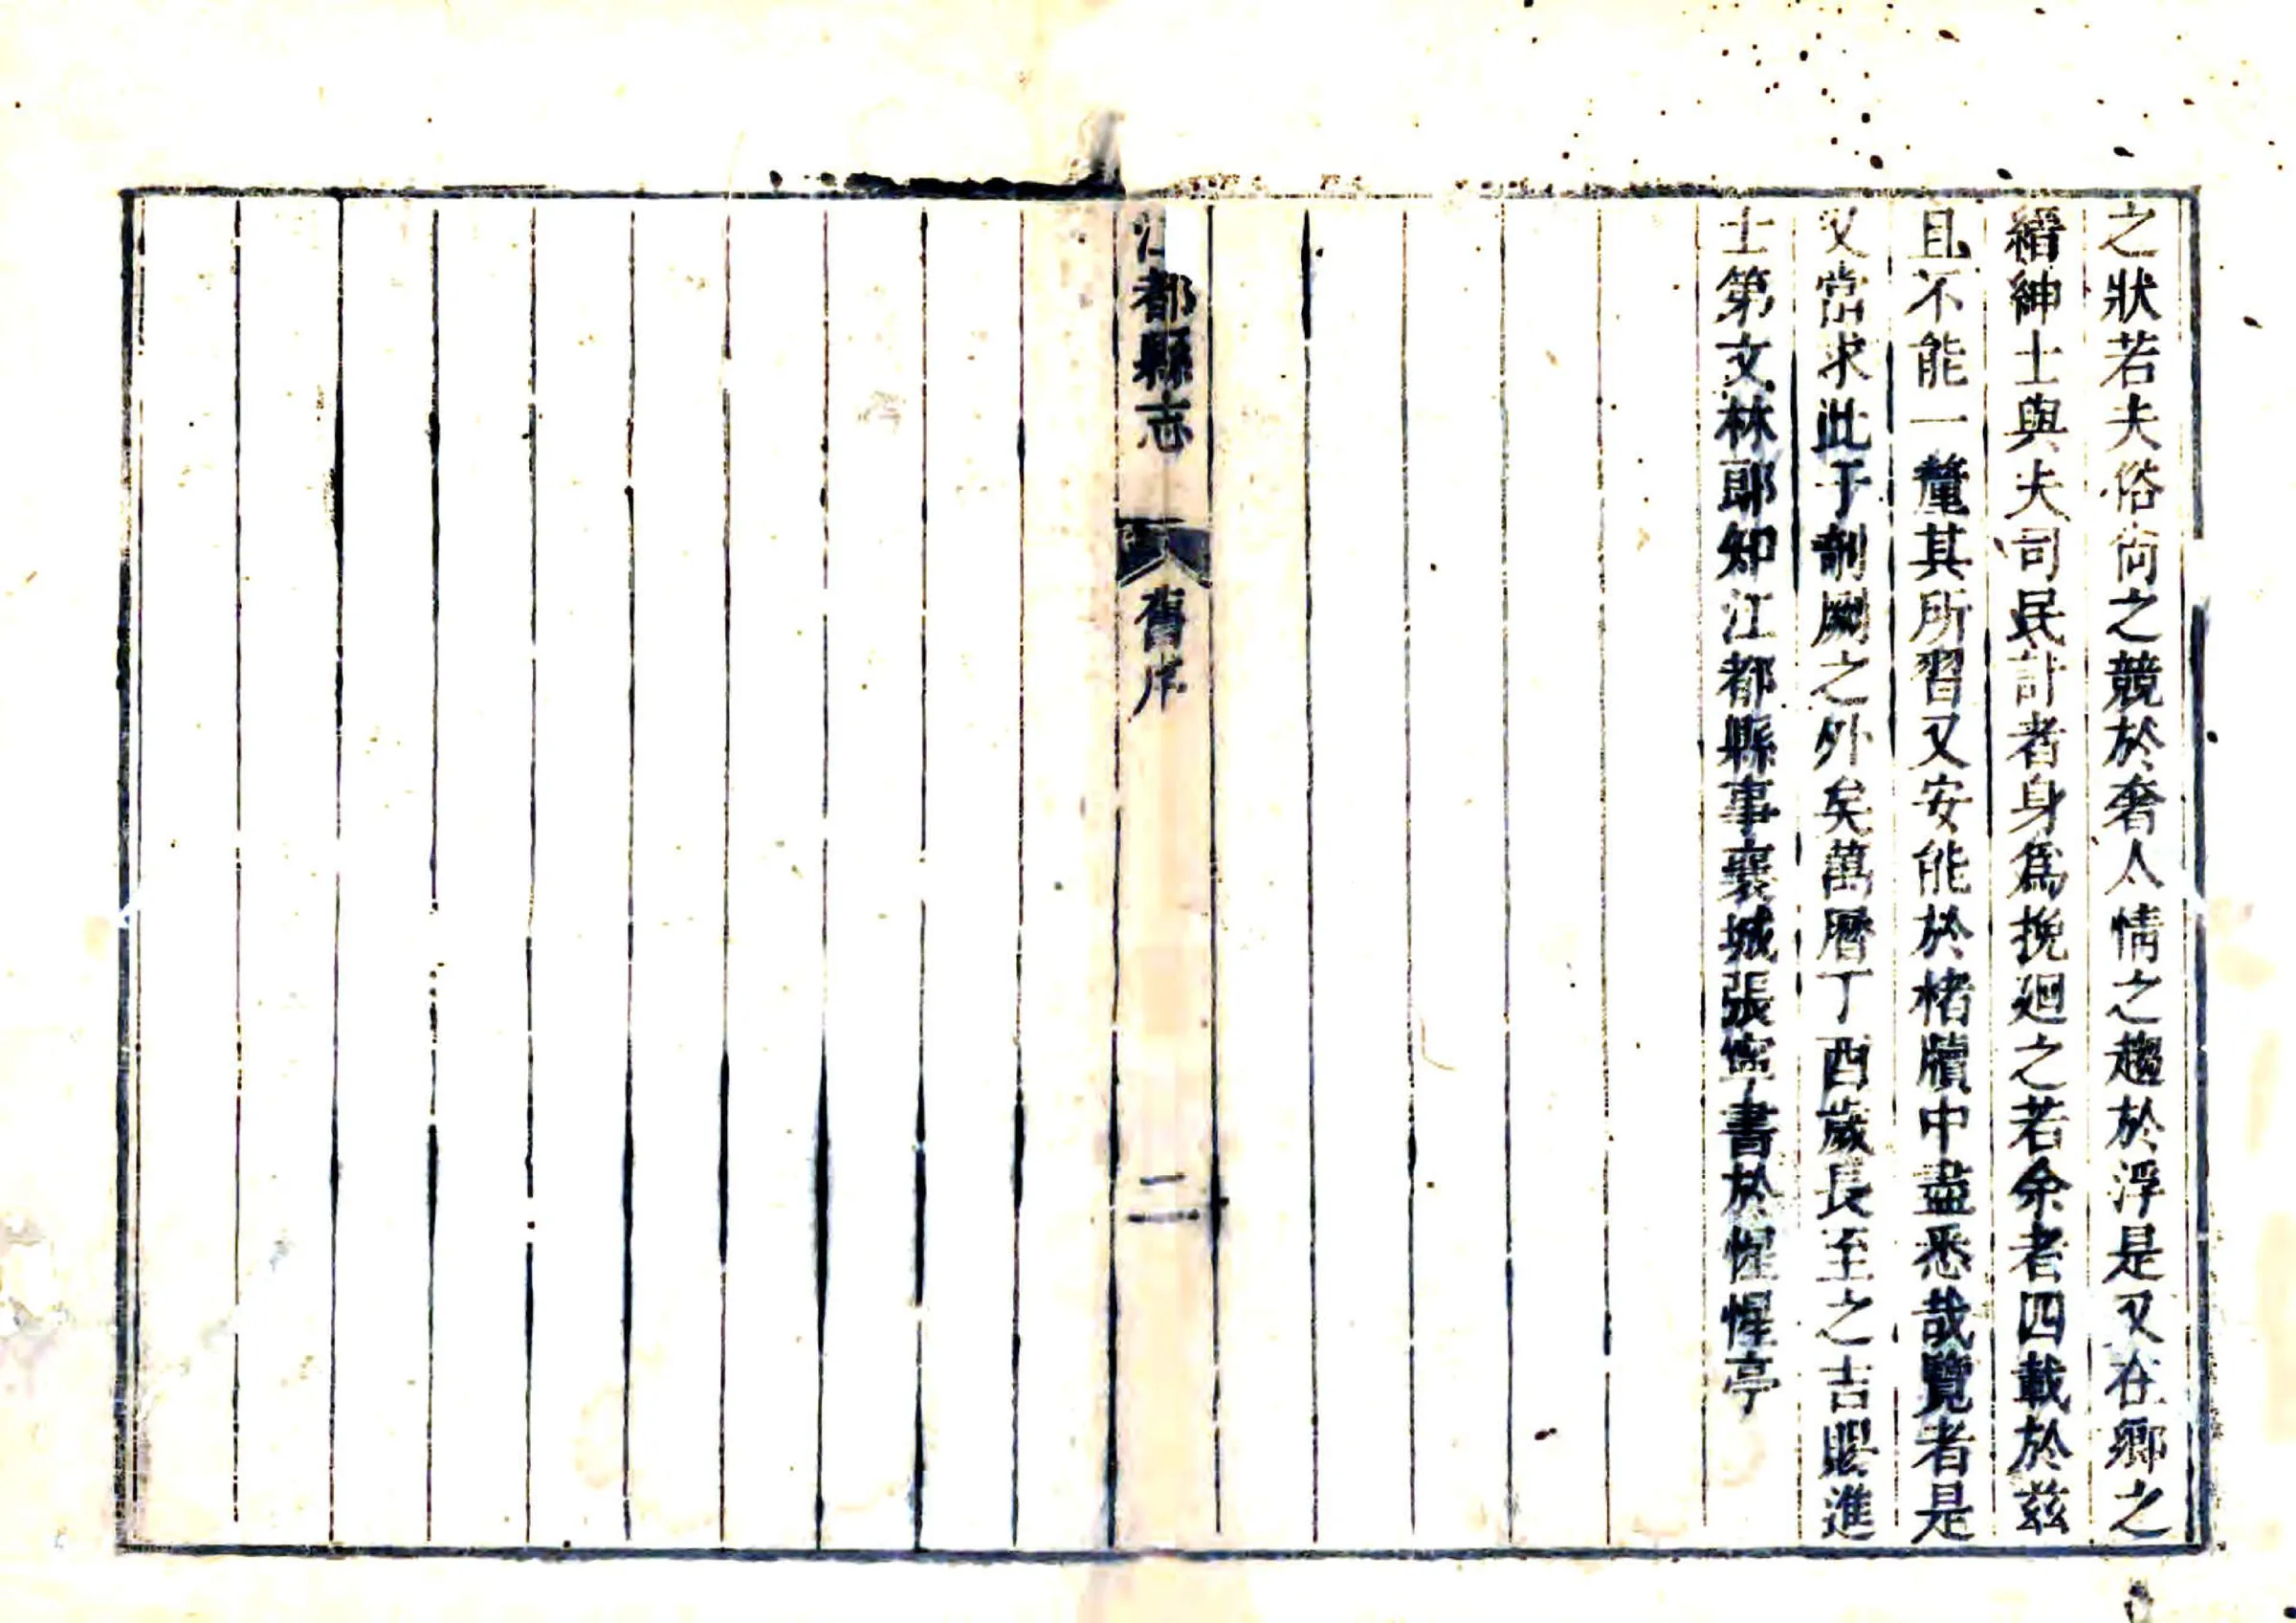 之狀若夫俗尚之競於奢人情之趨於浮是又在鄉之
縉紳士與夫司民計者身爲挽廻之若余者四載於茲
且不能一釐其所習又安能於楮牘中盡悉哉覽者是
又當求此于剞劂之外矣萬曆丁酉歲長至之吉賜進
士第文林郎知江都縣事襄城張寧書於惺惺亭
江都縣志
舊序
二